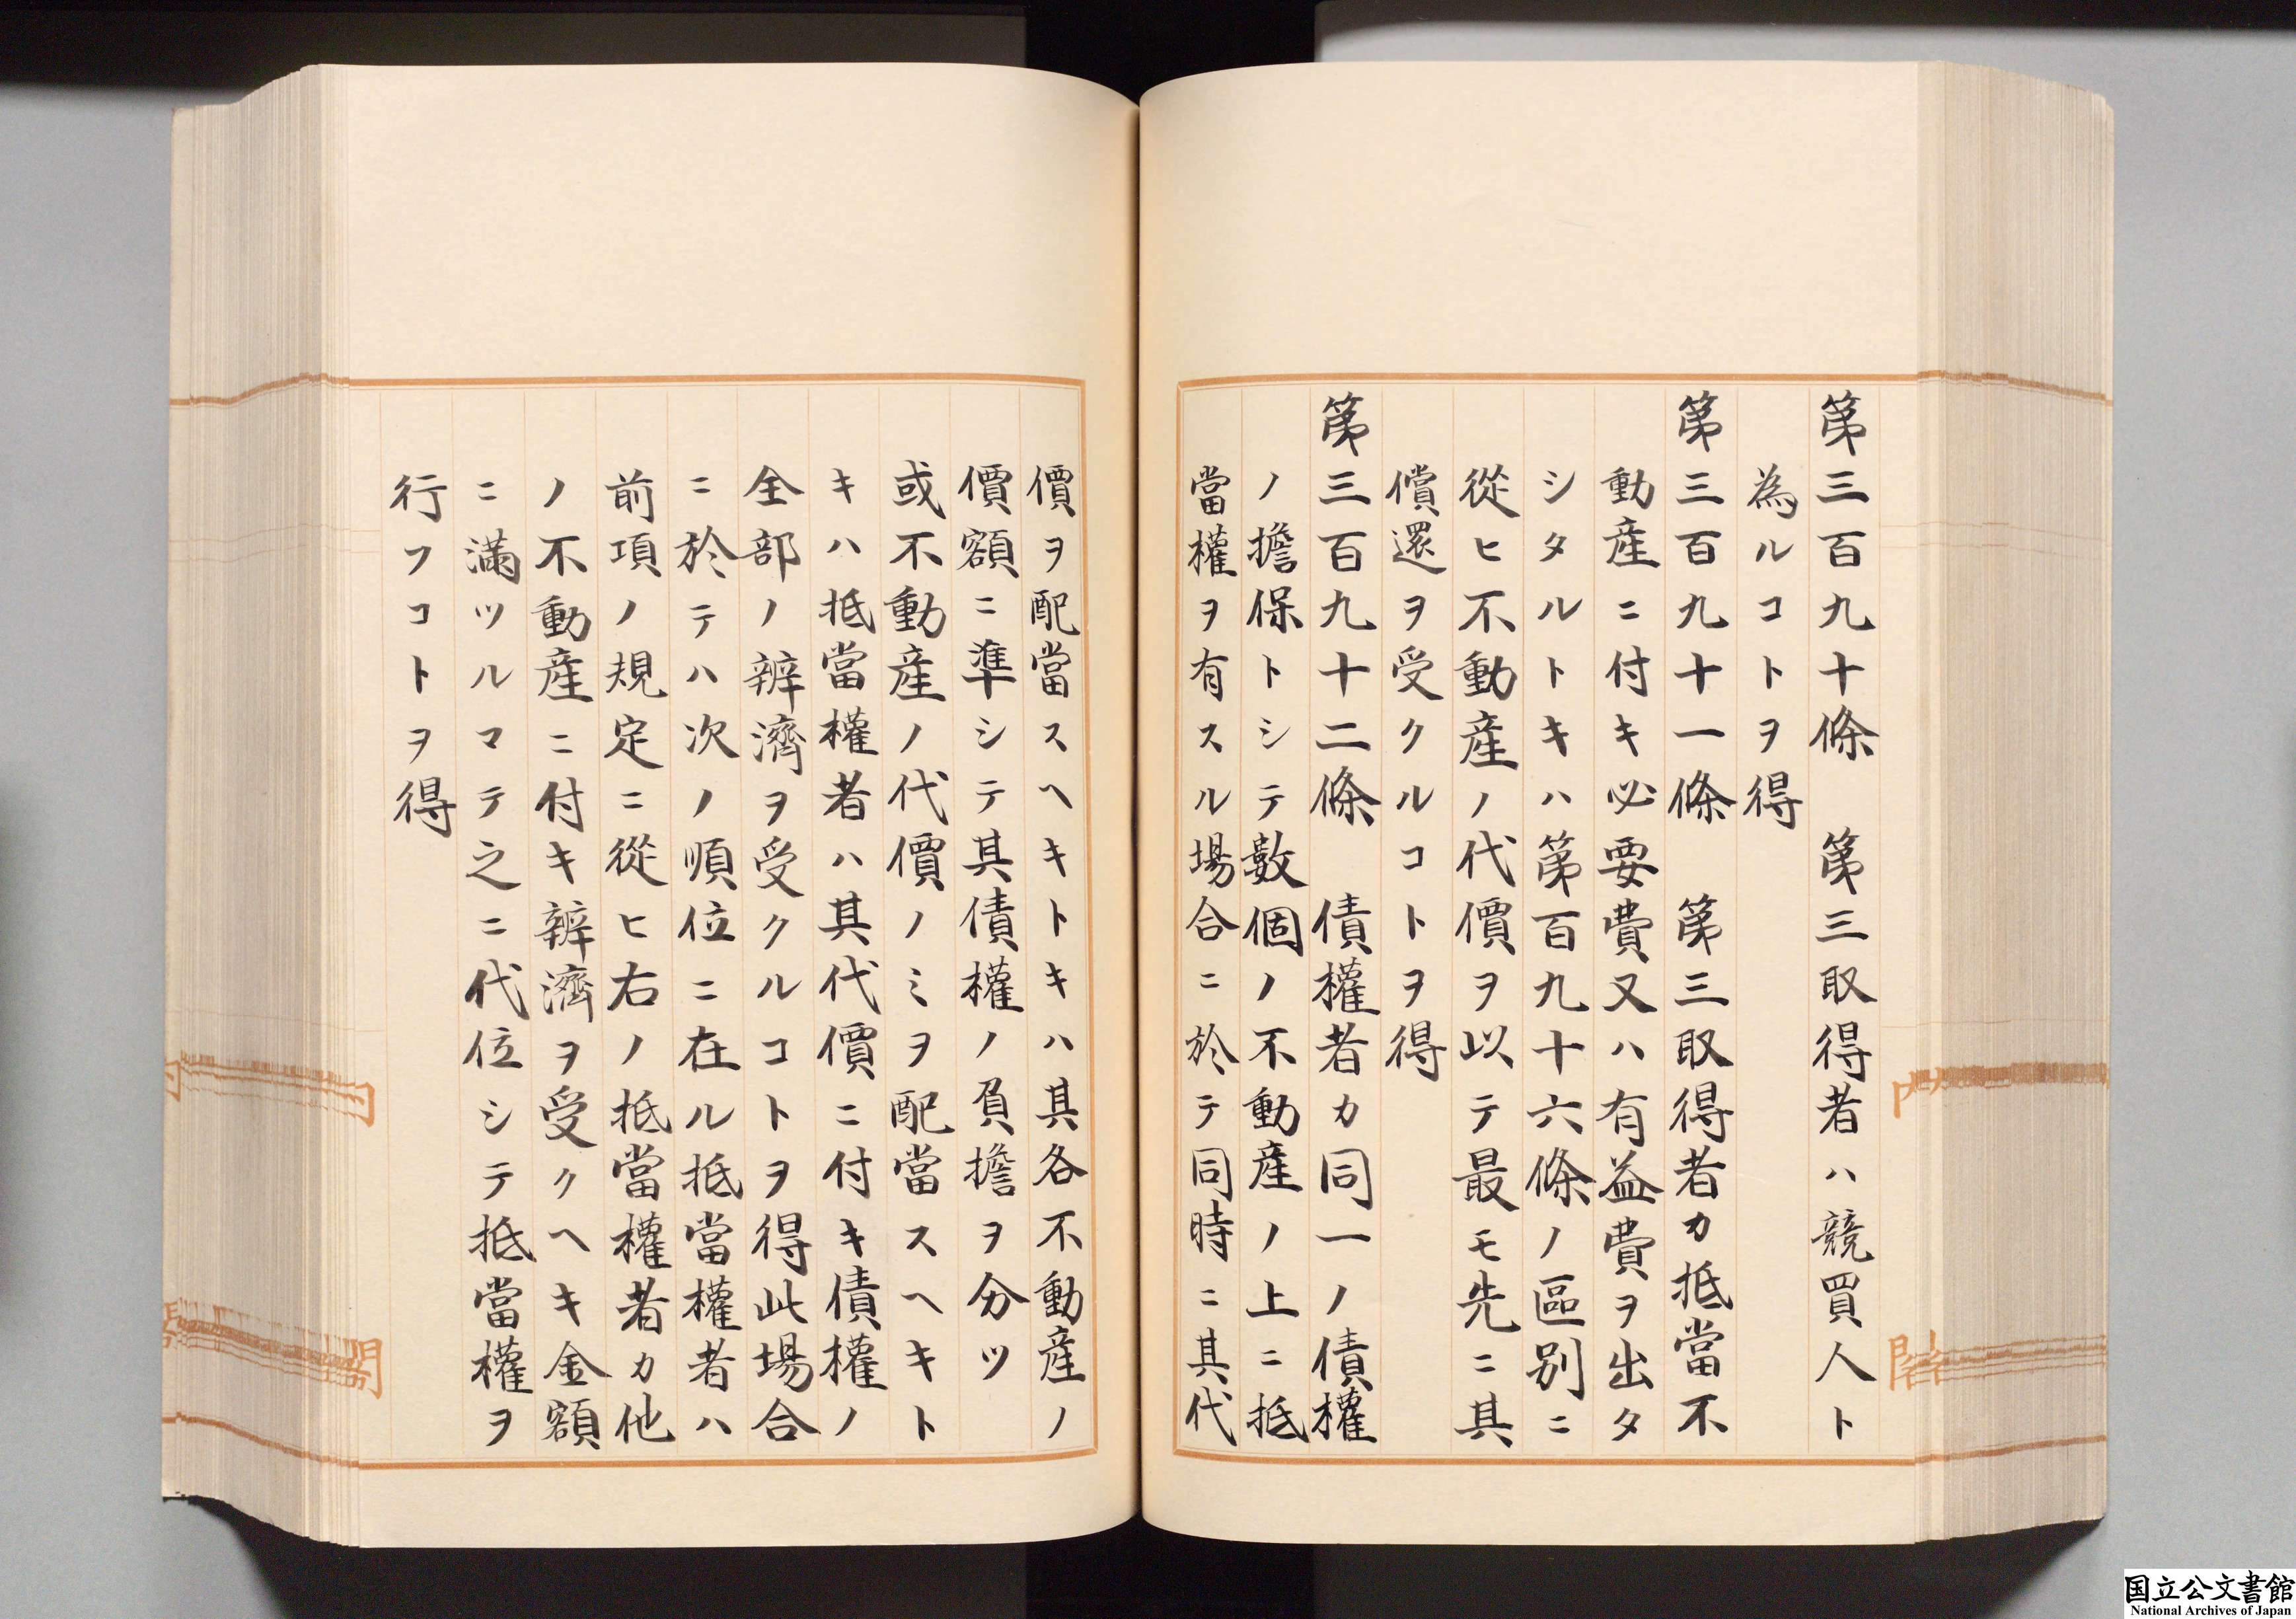 第三百九十條　第三取得者ハ競買人ト
為ルコトヲ得
第三百九十一條　第三取得者カ抵當不
動產ニ付キ必要費又ハ有益費ヲ出タ
シタルトキハ第百九十六條ノ區別ニ
從ヒ不動產ノ代價ヲ以テ最モ先ニ其
償還ヲ受クルコトヲ得
第三百九十二條　債權者カ同一ノ債權
ノ擔保トシテ數個ノ不動產ノ上ニ抵
當權ヲ有スル場合ニ於テ同時ニ其代
價ヲ配當スヘキトキハ其各不動產ノ
價額ニ準シテ其債權ノ負擔ヲ分ツ
或不動產ノ代價ノミヲ配當スヘキト
キハ抵當權者ハ其代價ニ付キ債權ノ
全部ノ辨濟ヲ受クルコトヲ得此場合
ニ於テハ次ノ順位ニ在ル抵當權者ハ
前項ノ規定ニ從ヒ右ノ抵當權者カ他
ノ不動產ニ付キ辨濟ヲ受クヘキ金額
ニ滿ツルマテ之ニ代位シテ抵當權ヲ
行フコトヲ得
国立公文書館
National Archives of Japan